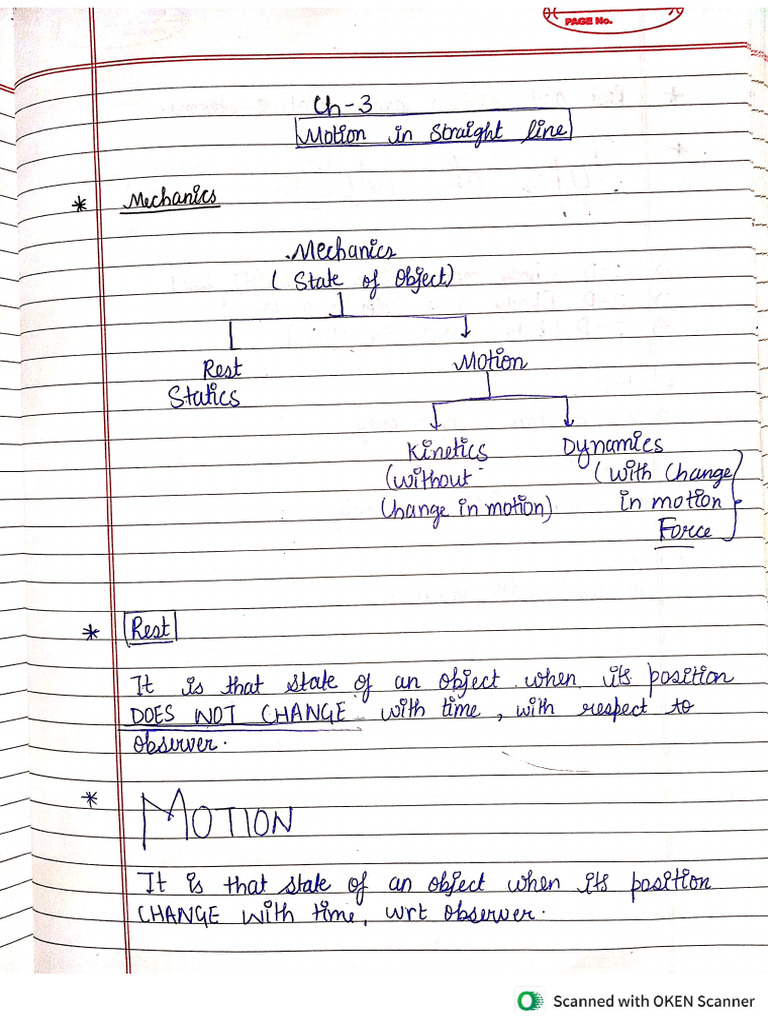 PAGE No.
Ch-3
Motion in Straight line
* Mechanics
Mechanics
(State of Object)
Rest Motion
Statics
Kinetics Dynamics
(without (with change
change in motion) in motion
Force
* Rest
It is that state of an object when its position
DOES NOT CHANGE with time, with respect to
observer.
* MOTION
It is that state of an object when its position
CHANGE with time, wrt observer.
Scanned with OKEN Scanner